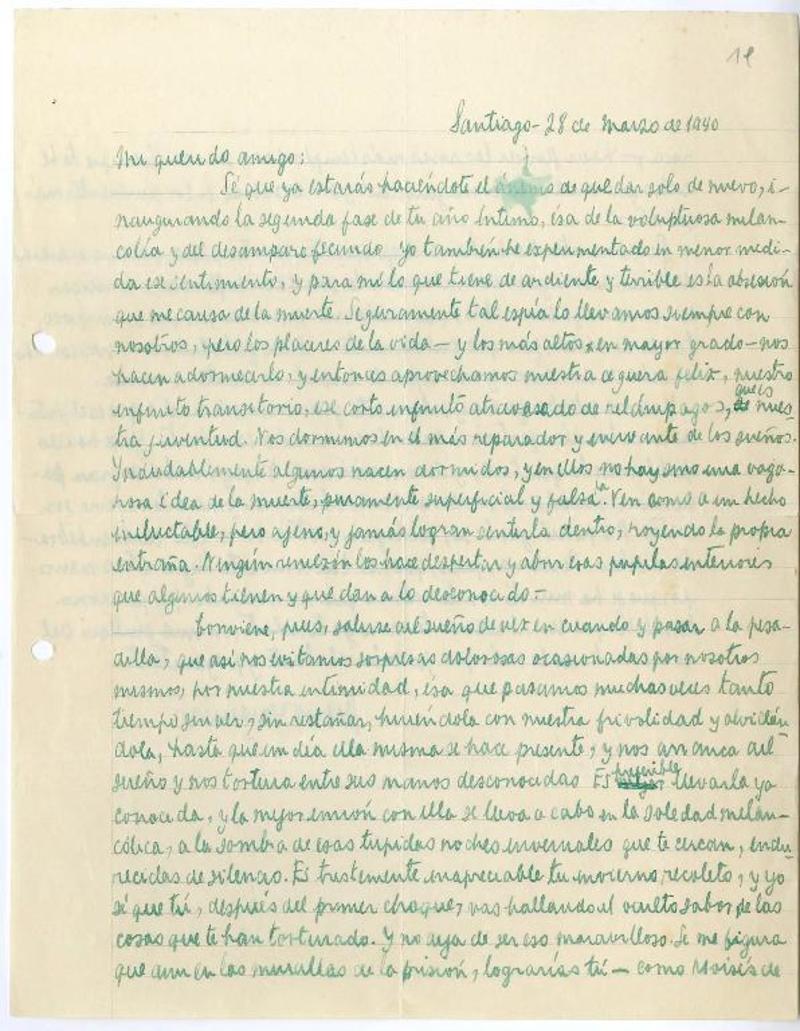 19
Santiago - 28 de Marzo de 1940
Mi querido amigo:
Sé que ya estarás haciéndote el ánimo de quedar solo de nuevo, i-
naugurando la segunda fase de tu año íntimo, ésa de la voluptuosa melan-
colía y del desamparo fecundo. Yo también he experimentado en menor medi-
da ese sentimiento, y para mí lo que tiene de ardiente y terrible es la obsesión
que me causa de la muerte. Seguramente tal espía lo llevamos siempre con
nosotros, pero los placeres de la vida - y los más altos, en mayor grado - nos
hacen adormecerlo, y entonces aprovechamos nuestra ceguera feliz, nuestro
infinito transitorio, ese corto infinito atravesado de relámpagos, que es nues-
tra juventud. Nos dormimos en el más reparador y enervante de los sueños.
Indudablemente algunos nacen dormidos, y en ellos no hay sino una vaga-
rosa idea de la muerte, puramente superficial y falsa. La ven como a un hecho
ineluctable, pero ajeno, y jamás logran sentirla dentro, royendo la propia
entraña. Ningún remezón los hace despertar y abrir esas pupilas interiores
que algunos tienen y que dan a lo desconocido.-
Conviene, pues, salirse del sueño de vez en cuando y pasar a la pesa-
dilla, que así nos evitamos sorpresas dolorosas ocasionadas por nosotros
mismos, por nuestra intimidad, ésa que pasamos muchas veces tanto
tiempo sin ver, sin restañar, hiriéndola con nuestra frivolidad y olvidán-
dola, hasta que un día ella misma se hace presente, y nos arranca del
sueño y nos tortura entre sus manos desconocidas. Es preferible llevarla ya
conocida, y la mejor unión con ella se lleva a cabo en la soledad melan-
cólica, a la sombra de esas tupidas noches invernales que te cercan, endu-
recidas de silencio. Es tristemente inapreciable tu invierno recoleto, y yo
sé que tú, después del primer choque, vas hallando el oculto sabor de las
cosas que te han torturado. Y no deja de ser eso maravilloso. Se me figura
que aun en las murallas de la prisión, lograrías tú - como Moisés de